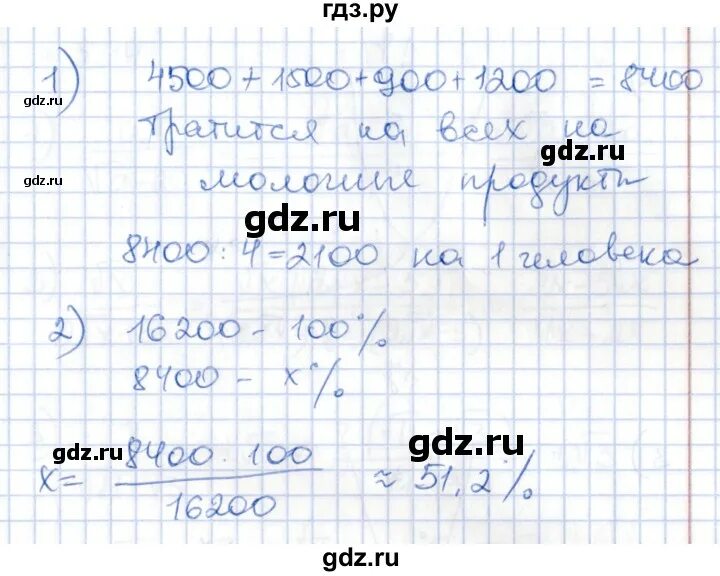 гдз.ру
1) 4500 + 1500 + 900 + 1200 = 8400
gdz.ru
тратится на всех на
gdz.ru
молочные продукты
gdz.ru
gdz.ru
8400 : 4 = 2100 на 1 человека
2) 16200 - 100%
8400 - x%
gdz.ru
gdz.ru
x = 8400 · 100 / 16200 ≈ 51,2%
gdz.ru
gdz.ru